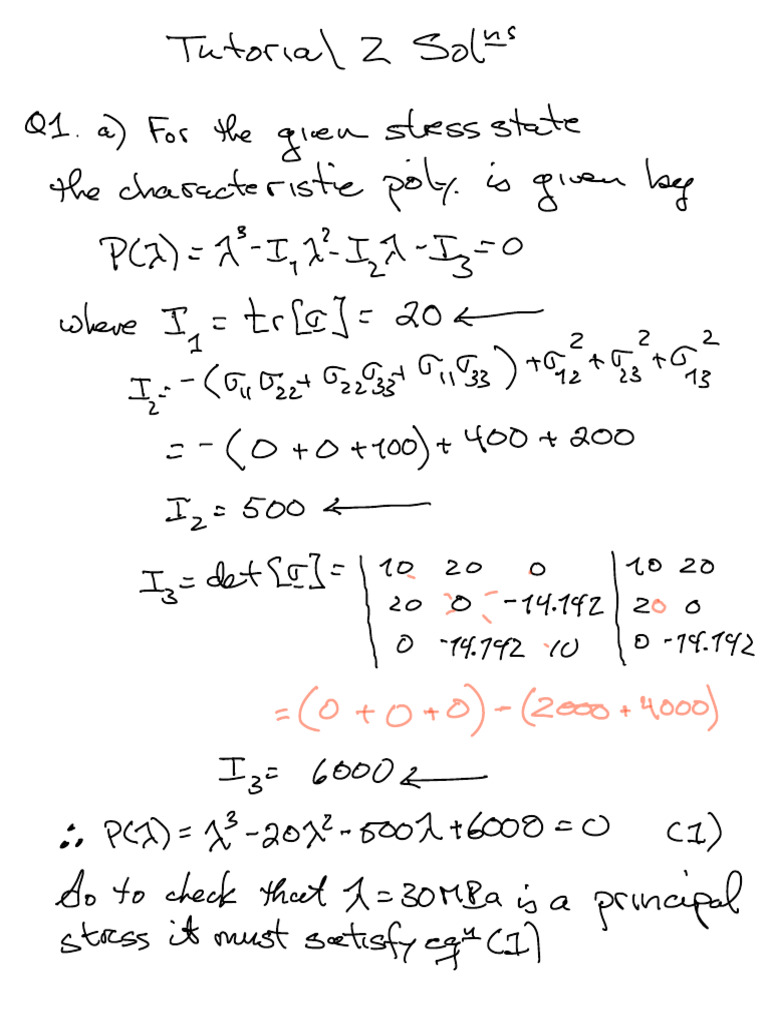 Tutorial 2 Solⁿˢ
Q1. a) For the given stress state
the characteristic poly. is given by
P(λ) = λ³ - I₁λ² - I₂λ - I₃ = 0
where I₁ = tr[σ] = 20 ←
I₂ = -(σ₁₁σ₂₂ + σ₂₂σ₃₃ + σ₁₁σ₃₃) + σ₁₂² + σ₂₃² + σ₁₃²
= -(0 + 0 + 100) + 400 + 200
I₂ = 500 ←
I₃ = det[σ] = | 10 20 0 | 10 20
20 0 -14.142 | 20 0
0 -14.142 10 | 0 -14.142
= (0 + 0 + 0) - (2000 + 4000)
I₃ = 6000 ←
∴ P(λ) = λ³ - 20λ² - 500λ + 6000 = 0 (1)
So to check that λ = 30MPa is a principal
stress it must satisfy eqⁿ (1)